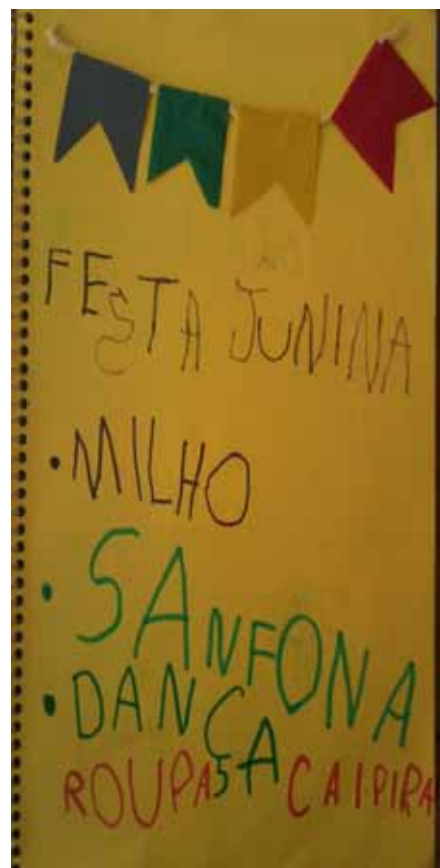 FESTA JUNINA
• MILHO
• SANFONA
• DANÇA
ROUPAS CAIPIRA